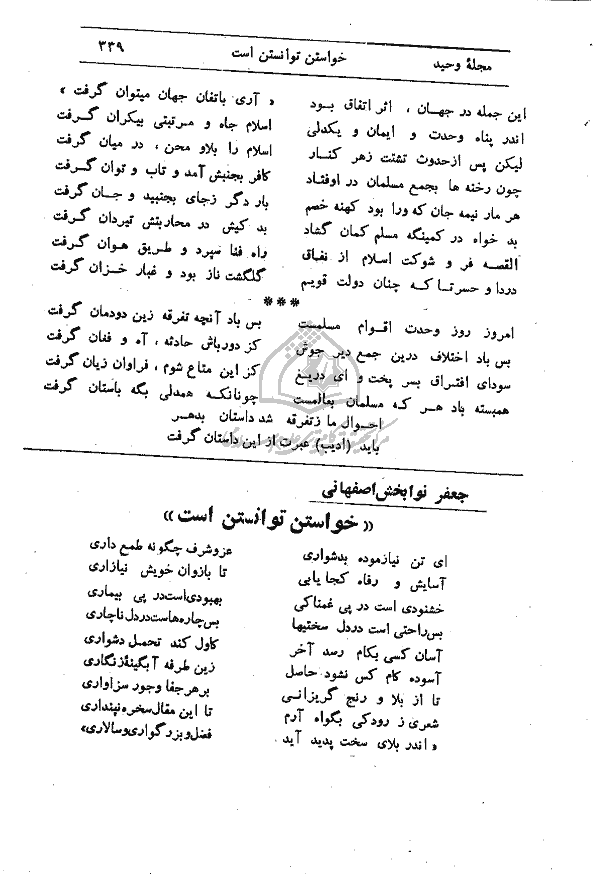 مجلهٔ وحید خواستن توانستن است ۳۳۹
این جمله در جهان ، اثر اتفاق بود « آری باتفاق جهان میتوان گرفت »
اندر پناه وحدت و ایمان و یکدلی اسلام جاه و مرتبتی بیکران گرفت
لیکن پس از حدوث تشتت زهر کنار اسلام را بلاو محن ، در میان گرفت
چون رخنه ها بجمع مسلمان در اوفتاد کافر بجنبش آمد و تاب و توان گرفت
هر مار نیمه جان که ورا بود کهنه خصم بار دگر زجای بجنبید و جان گرفت
بد خواه در کمینگه مسلم کمان گشاد بد کیش در محاربتش تیردان گرفت
القصه فر و شوکت اسلام از نفاق راه فنا سپرد و طریق هوان گرفت
دردا و حسرتا که چنان دولت قویم گلگشت ناز بود و غبار خزان گرفت
***
امروز روز وحدت اقوام مسلمست بس باد آنچه تفرقه زین دودمان گرفت
بس باد اختلاف درین جمع دیر جوش کز دورباش حادثه ، آه و فغان گرفت
سودای افتراق بسر پخت و ای دریغ کز این متاع شوم ، فراوان زیان گرفت
همبسته باد هر که مسلمان بعالمست چونانکه همدلی بگه باستان گرفت
احوال ما ز تفرقه شد داستان بدهر
باید (ادیب) عبرت از این داستان گرفت
جعفر نوابخش اصفهانی
«خواستن توانستن است»
ای تن نیازموده بدشواری عزوشرف چگونه طمع داری
آسایش و رفاه کجا یابی تا بازوان خویش نیازاری
خشنودی است در پی غمناکی بهبودی است در پی بیماری
بس راحتی است در دل سختیها بس چاره‌هاست در دل ناچاری
آسان کسی بکام رسد آخر کاول کند تحمل دشواری
آسوده کام کس نشود حاصل زین طرفه آبگینهٔ زنگاری
تا از بلا و رنج گریزانی بر هر جفا و جور سزاواری
شعری ز رودکی بگواه آرم تا این مقال سخره نپنداری
« اندر بلای سخت پدید آید فضل و بزرگواری و سالاری»